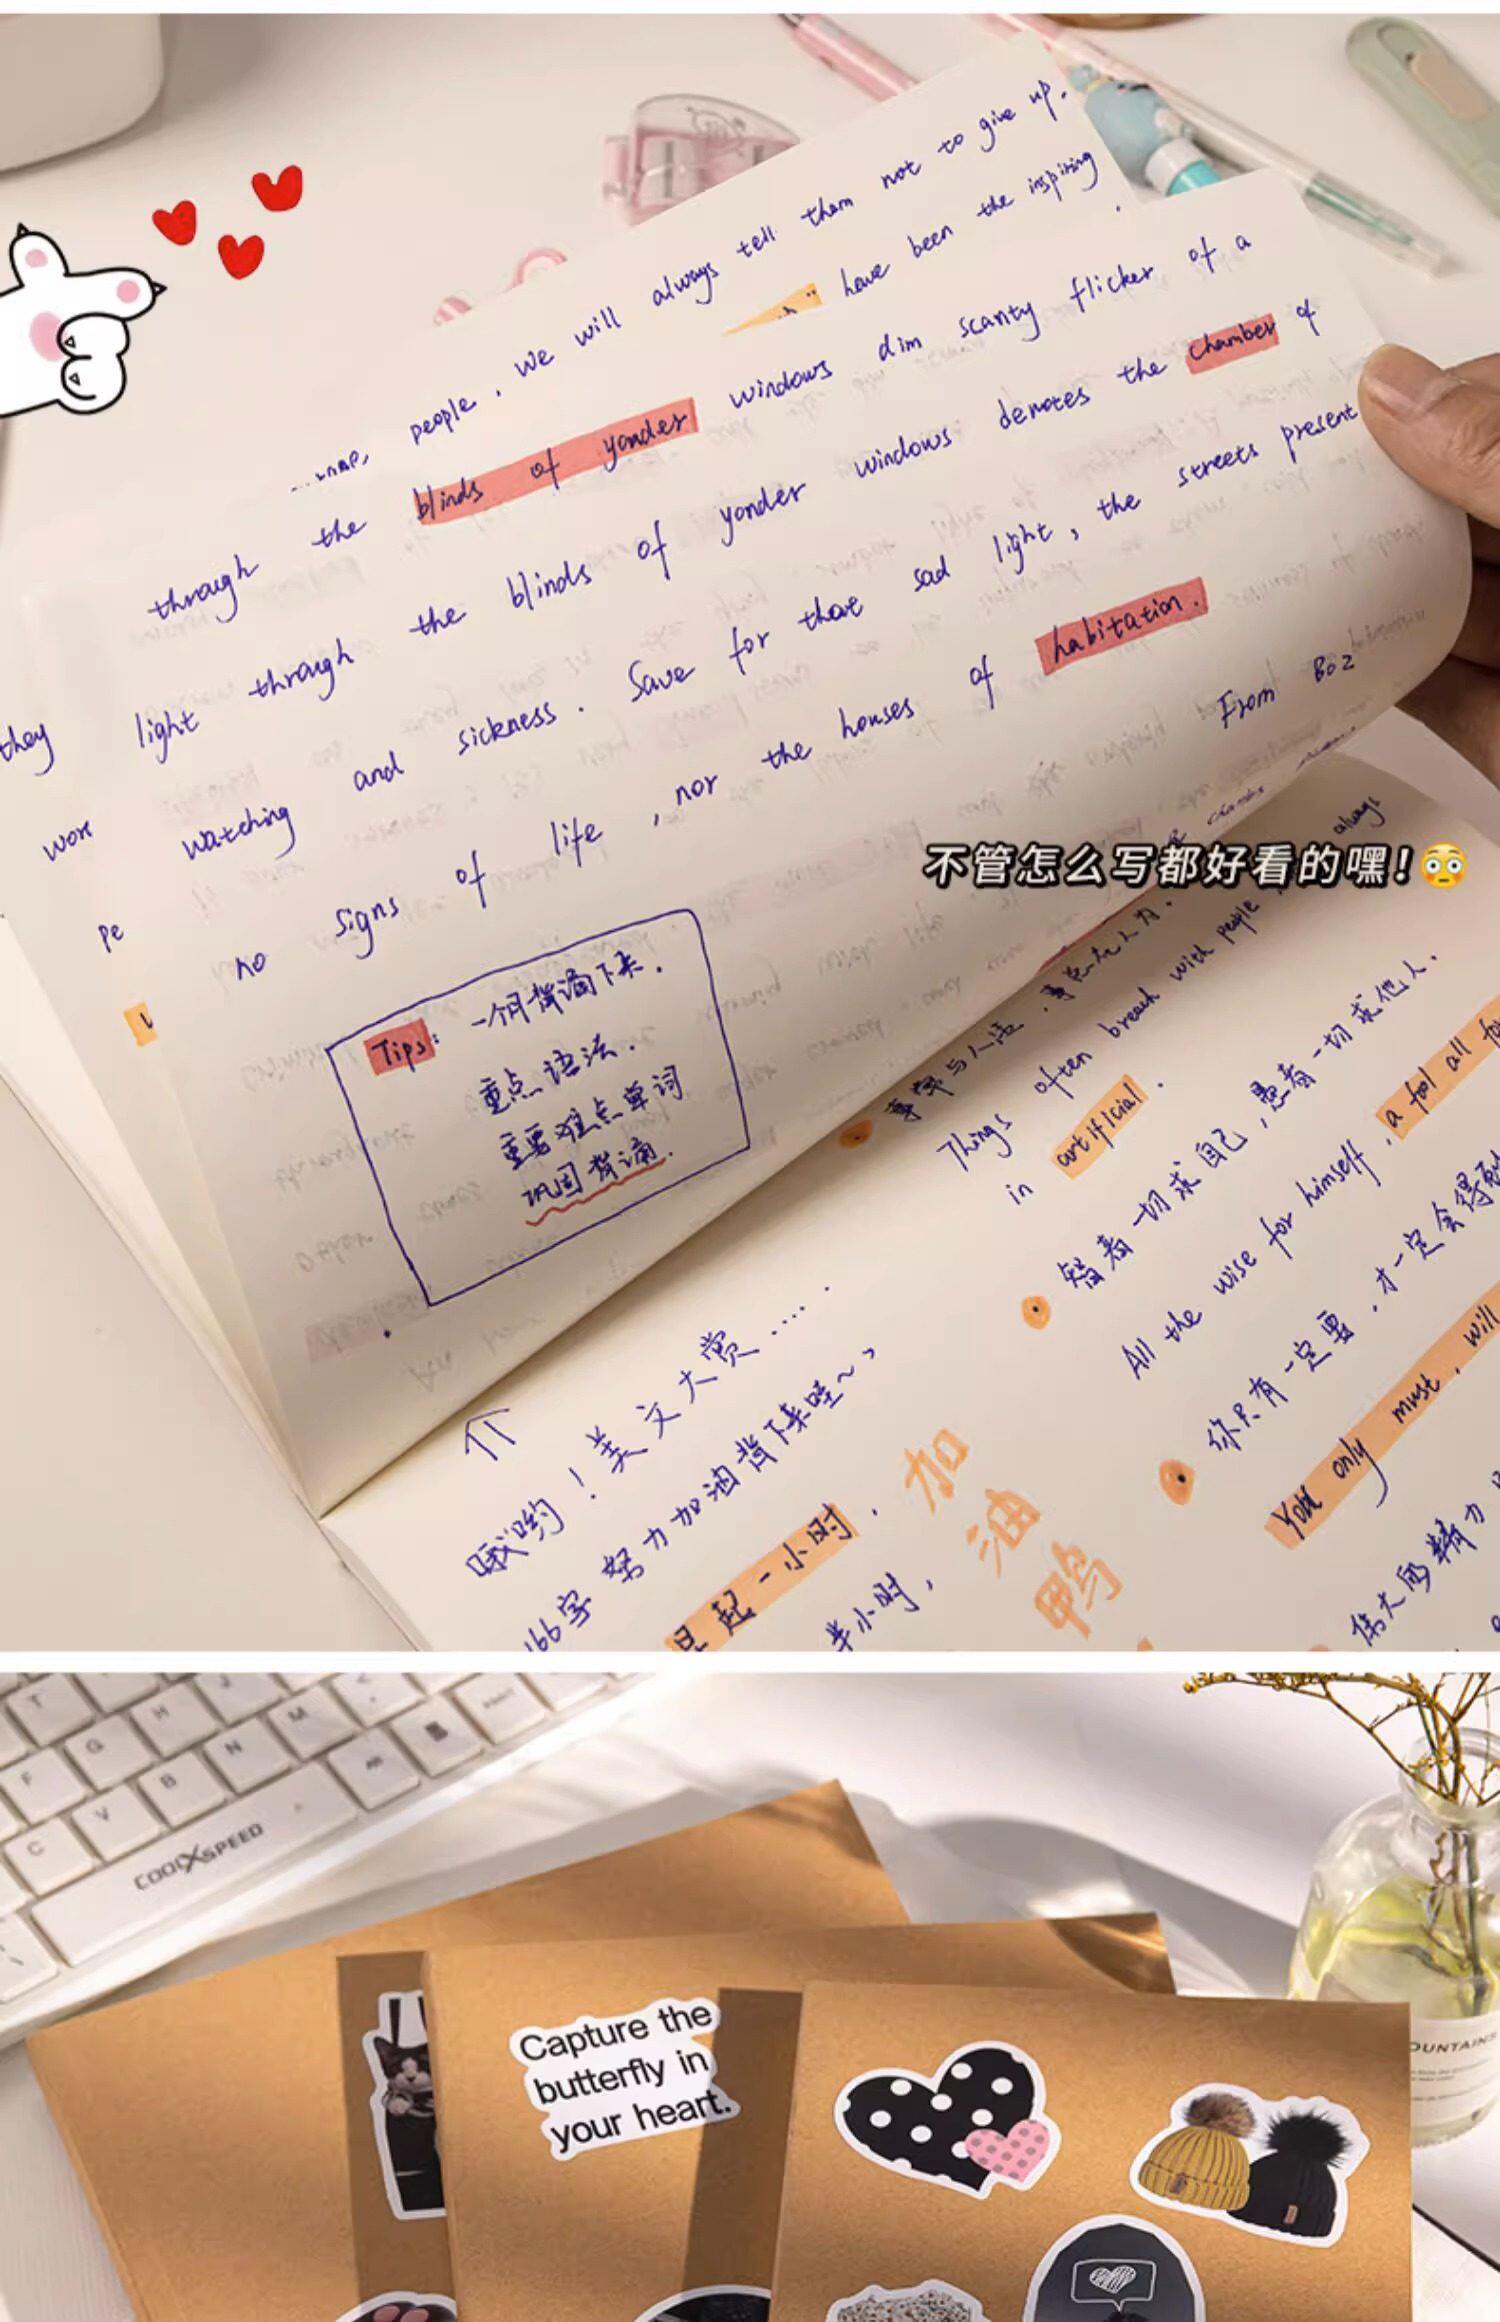 people, we will always tell them not to give up.
have been the inspiring
through the blinds of yonder windows dim scanty flicker of a
they light through the blinds of yonder windows denotes the chamber of
watching and sickness. Save for that sad light, the streets present
no signs of life, nor the houses of habitation.
From Boz
Tips: 一个月背诵下来.
重点语法.
重要难点单词
巩固背诵.
不管怎么写都好看的嘿！😳
always
Things often breach with people
in artificial.
智者一切求自己,愚者一切求他人.
All the wise for himself, a fool all for
你只有一定要,才一定会得到
You only must, will
伟大的精力
哦哟！美文大赏……
166字努力加油背下来哇~,
早起一小时.
半小时,
加油鸭
T
H
J
M
F
G
N
B
V
C
COOLXSPEED
Capture the
butterfly in
your heart.
OUNTAINS